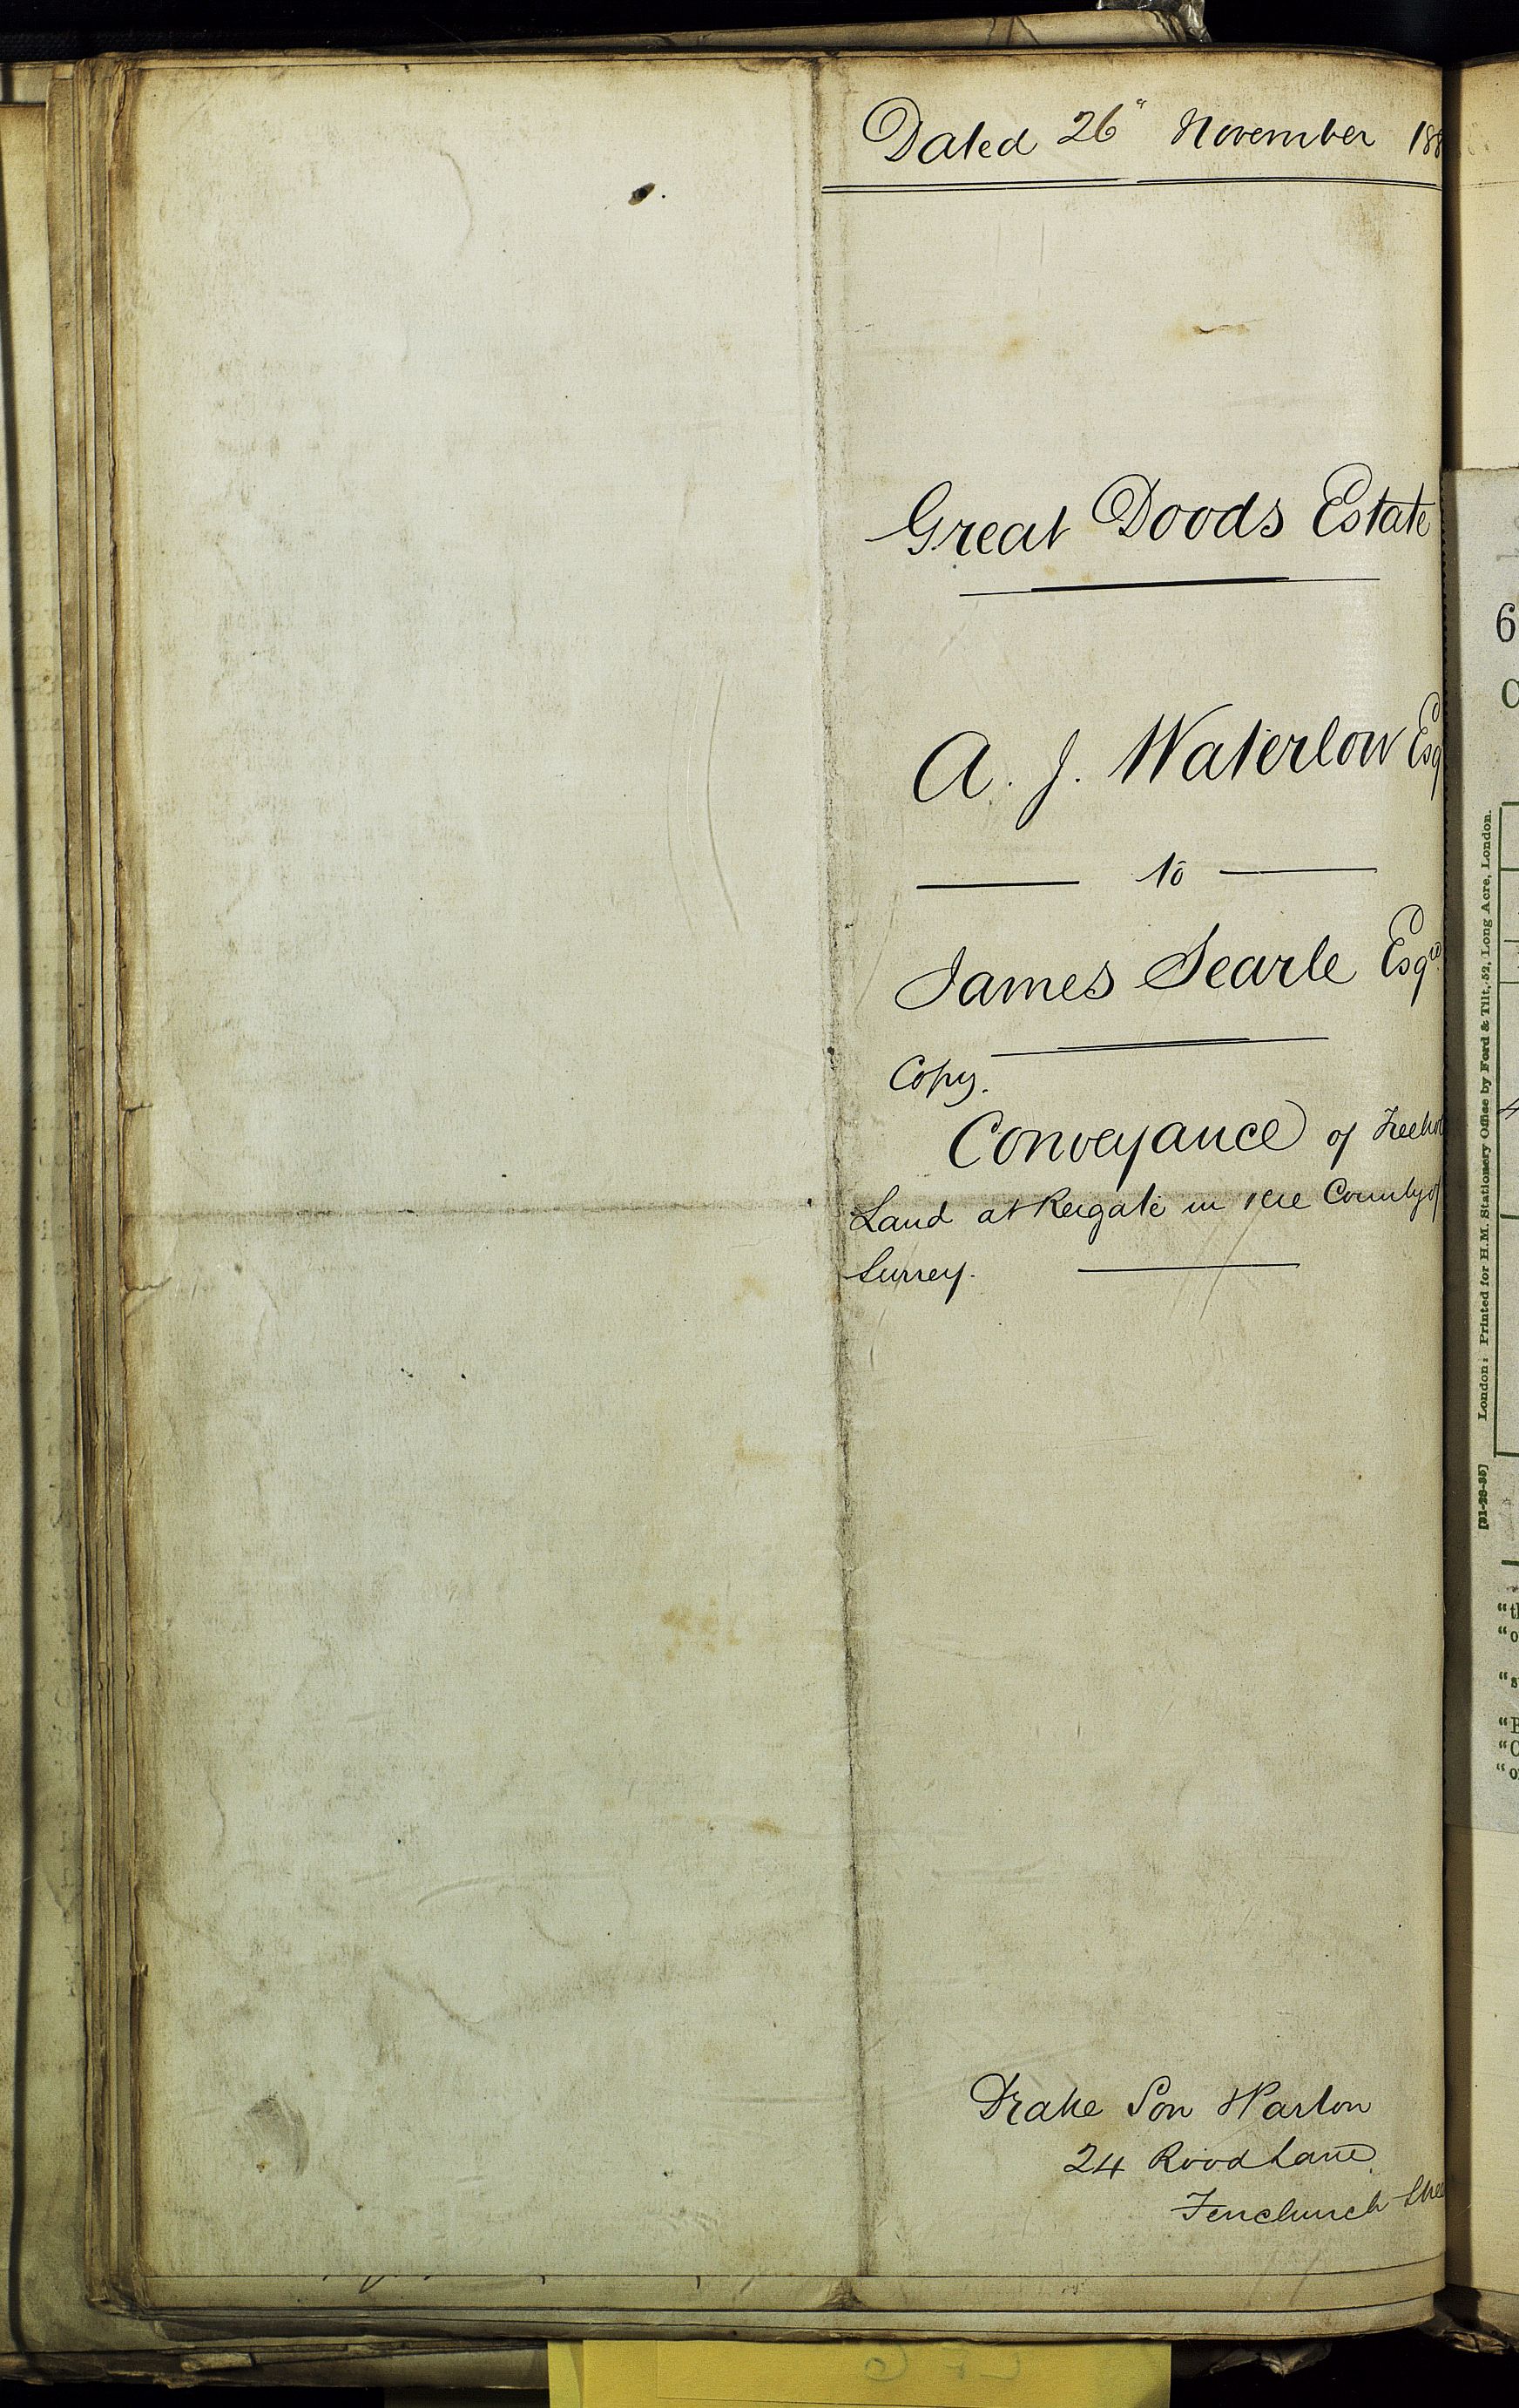 Dated 26" November 188
Great Doods Estate
A. J. Waterlow Esq
to
James Searle Esqre
Copy.
Conveyance of Freehol
Land at Reigate in the County of
Surrey.
Drake Son & Parton
24 Rood Lane
Fenchurch Stree
6
C
4
[31-28-35] London: Printed for H.M. Stationery Office by Ford & Tilt, 52, Long Acre, London.
"th
"o
"s
"P
"C
"o